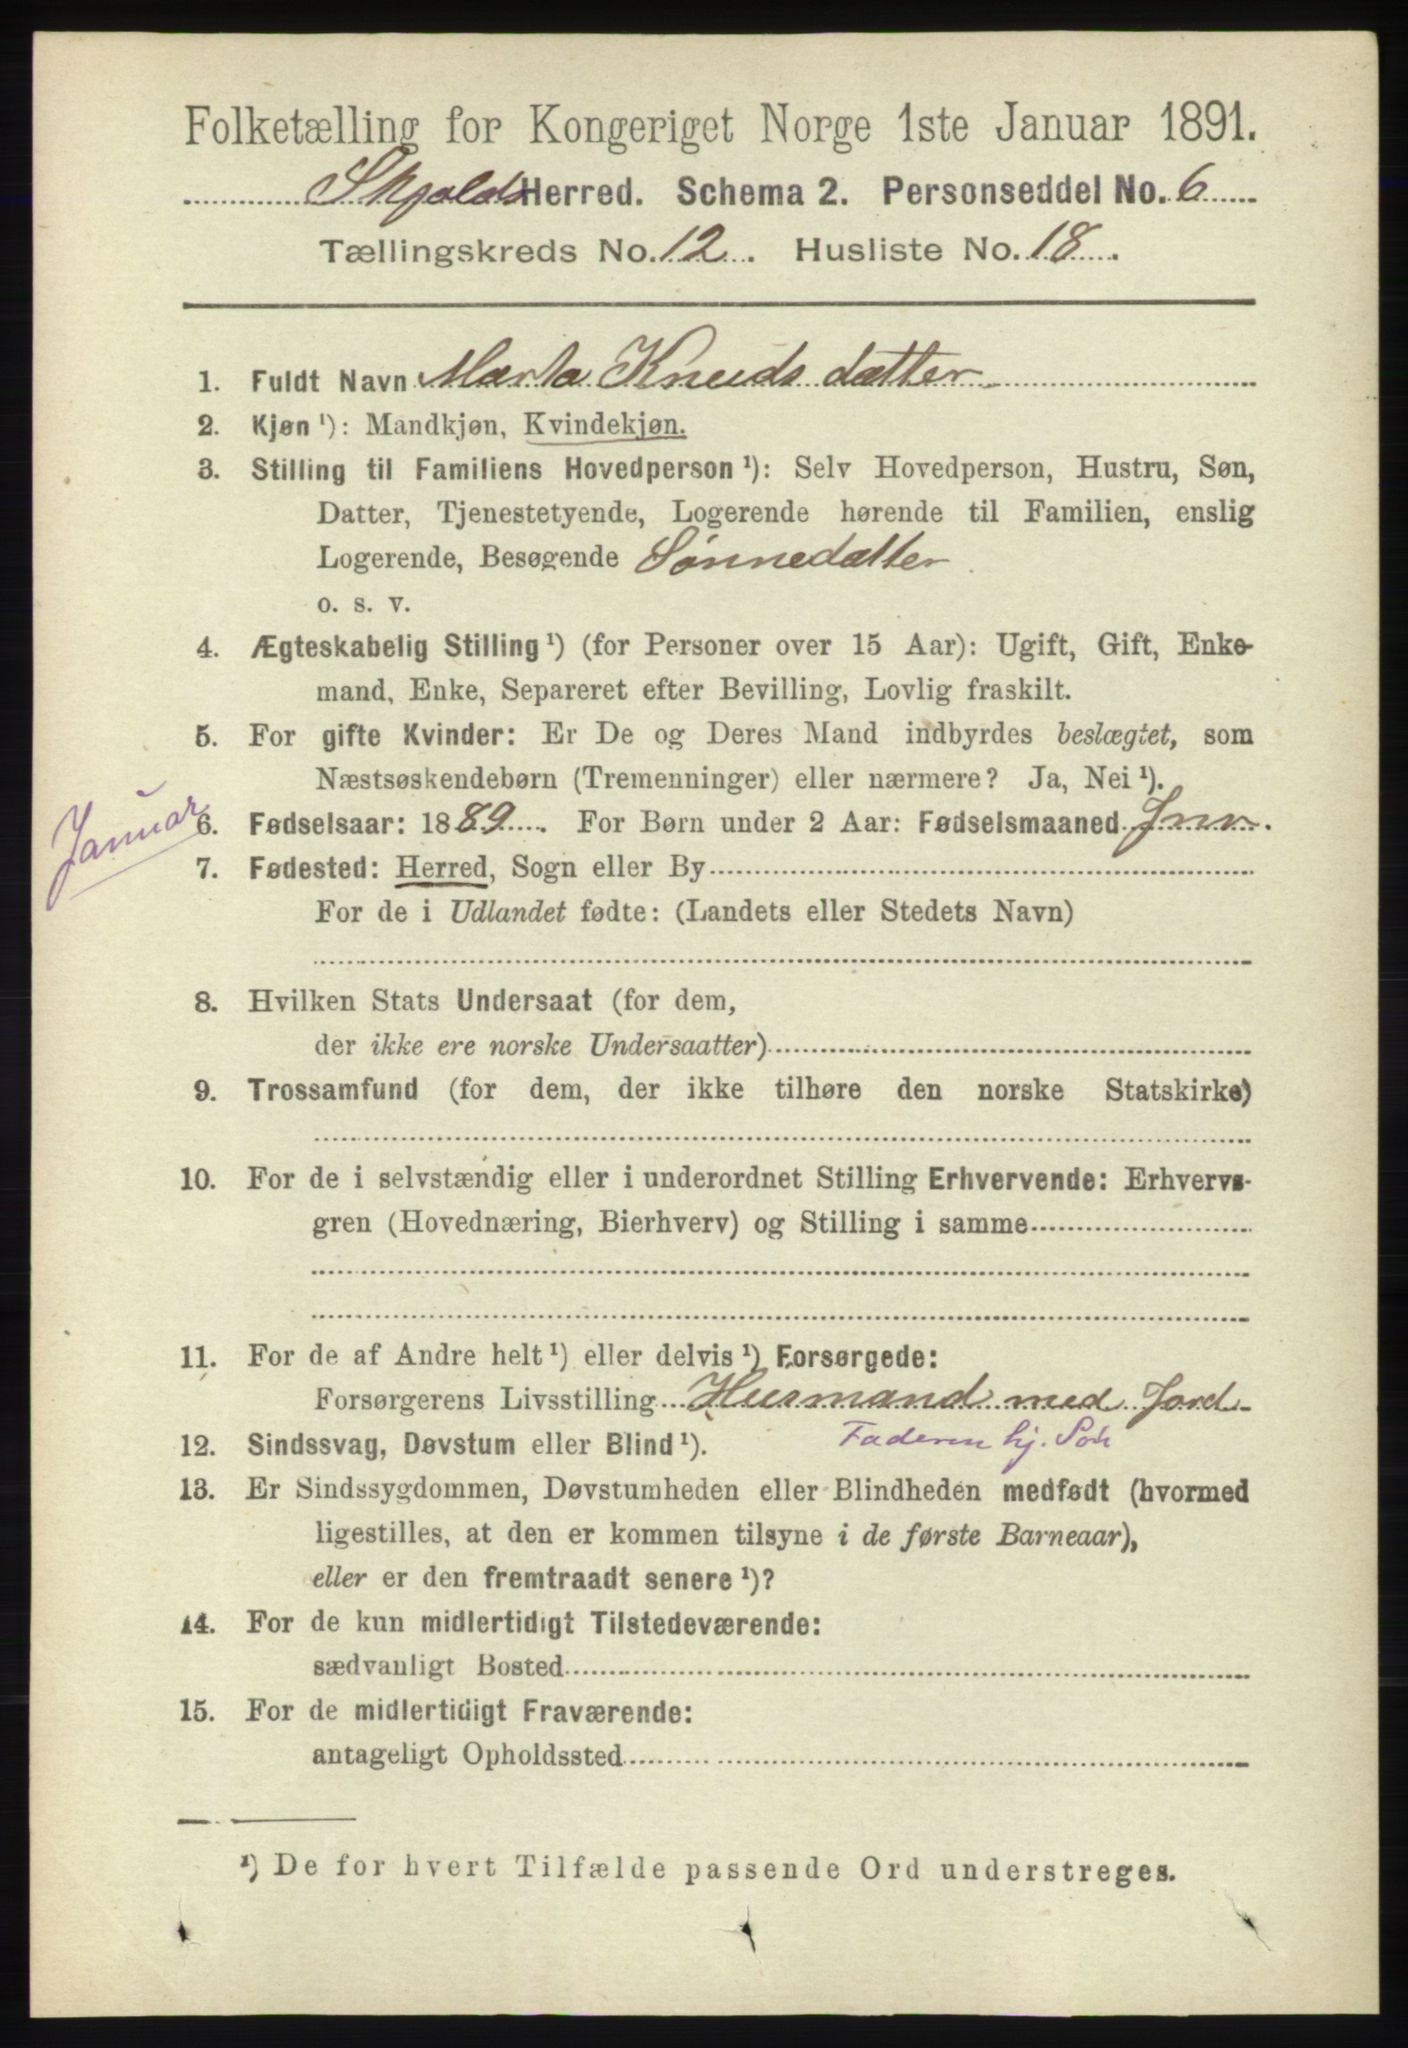 Folketælling for Kongeriget Norge 1ste Januar 1891.
Skjolds Herred. Schema 2. Personseddel No. 6
Tællingskreds No. 12. Husliste No. 18.
1. Fuldt Navn Marta Knuds datter
2. Kjøn ¹): Mandkjøn, Kvindekjøn.
3. Stilling til Familiens Hovedperson ¹): Selv Hovedperson, Hustru, Søn,
Datter, Tjenestetyende, Logerende hørende til Familien, enslig
Logerende, Besøgende Sønnedatter
o. s. v.
4. Ægteskabelig Stilling ¹) (for Personer over 15 Aar): Ugift, Gift, Enke-
mand, Enke, Separeret efter Bevilling, Lovlig fraskilt.
5. For gifte Kvinder: Er De og Deres Mand indbyrdes beslægtet, som
Næstsøskendebørn (Tremenninger) eller nærmere? Ja, Nei ¹).
Januar
6. Fødselsaar: 1889. For Børn under 2 Aar: Fødselsmaaned
7. Fødested: Herred, Sogn eller By
For de i Udlandet fødte: (Landets eller Stedets Navn)
8. Hvilken Stats Undersaat (for dem,
der ikke ere norske Undersaatter)
9. Trossamfund (for dem, der ikke tilhøre den norske Statskirke)
10. For de i selvstændig eller i underordnet Stilling Erhvervende: Erhvervs-
gren (Hovednæring, Bierhverv) og Stilling i samme
11. For de af Andre helt ¹) eller delvis ¹) Forsørgede:
Forsørgerens Livsstilling Husmand med Jord
Faderen hj. Søn
12. Sindssvag, Døvstum eller Blind ¹).
13. Er Sindssygdommen, Døvstumheden eller Blindheden medfødt (hvormed
ligestilles, at den er kommen tilsyne i de første Barneaar),
eller er den fremtraadt senere ¹)?
14. For de kun midlertidigt Tilstedeværende:
sædvanligt Bosted
15. For de midlertidigt Fraværende:
antageligt Opholdssted
¹) De for hvert Tilfælde passende Ord understreges.